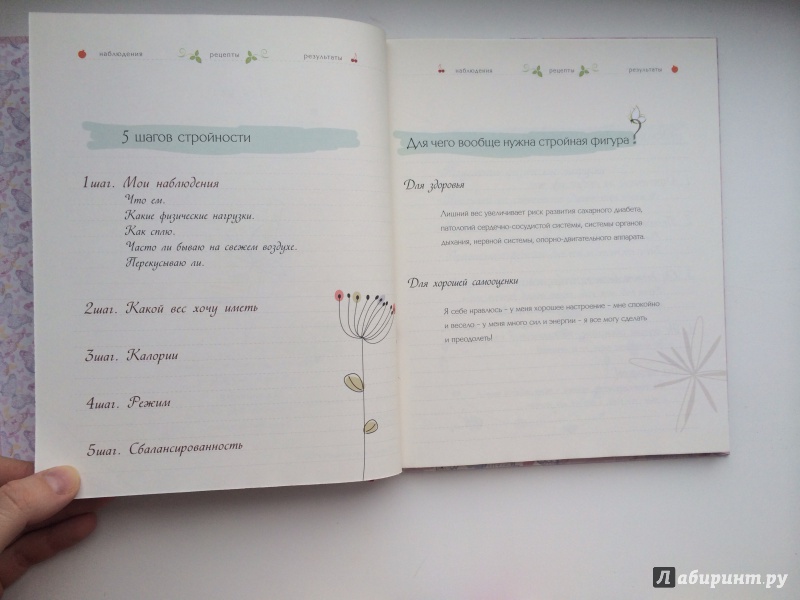 наблюдения рецепты результаты
5 шагов стройности
1шаг. Мои наблюдения
Что ем.
Какие физические нагрузки.
Как сплю.
Часто ли бываю на свежем воздухе.
Перекусываю ли.
2шаг. Какой вес хочу иметь
3шаг. Калории
4шаг. Режим
5шаг. Сбалансированность
наблюдения рецепты результаты
Для чего вообще нужна стройная фигура?
Для здоровья
Лишний вес увеличивает риск развития сахарного диабета,
патологий сердечно-сосудистой системы, системы органов
дыхания, нервной системы, опорно-двигательного аппарата.
Для хорошей самооценки
Я себе нравлюсь – у меня хорошее настроение – мне спокойно
и весело – у меня много сил и энергии – я все могу сделать
и преодолеть!
Лабиринт.ру